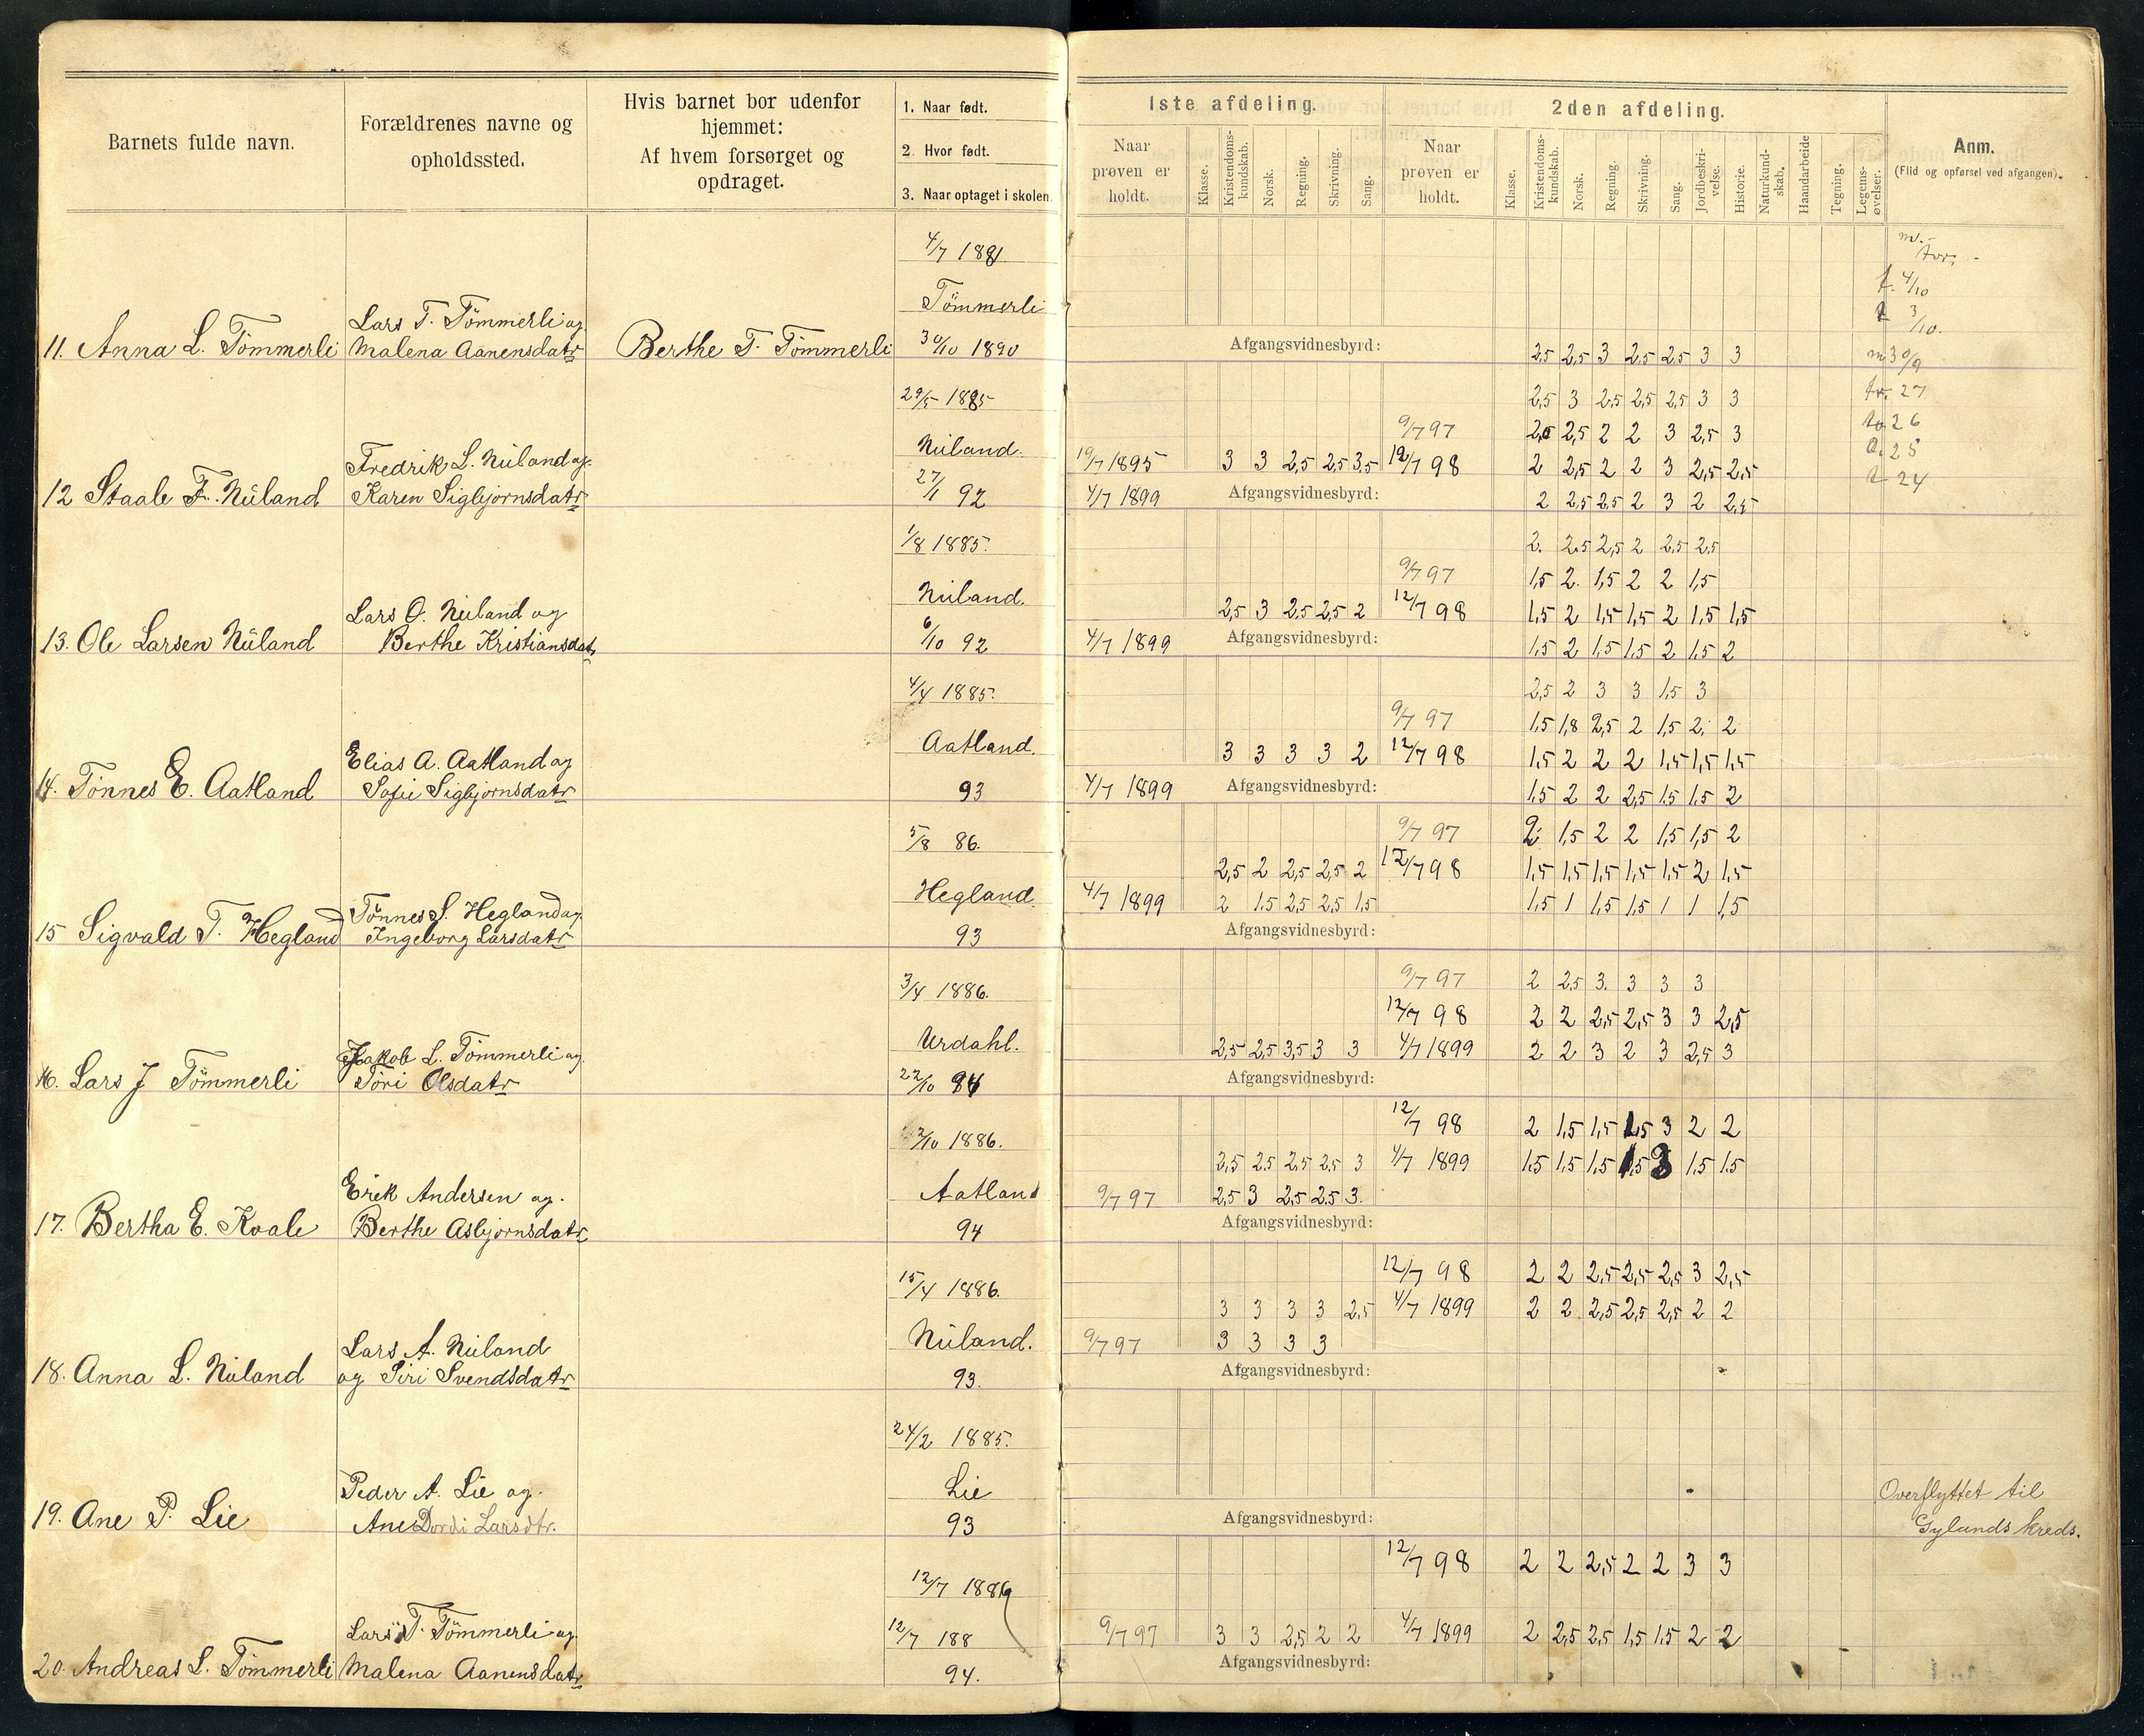 Barnets fulde navn.
Forældrenes navne og
opholdssted.
Hvis barnet bor udenfor
hjemmet:
Af hvem forsørget og
opdraget.
1. Naar født.
2. Hvor født.
3. Naar optaget i skolen.
1ste afdeling.
Naar
prøven er
holdt.
Klasse.
Kristendoms-
kundskab.
Norsk.
Regning.
Skrivning.
Sang.
2den afdeling.
Naar
prøven er
holdt.
Klasse.
Kristendoms-
kundskab.
Norsk.
Regning.
Skrivning.
Sang.
Jordbeskri-
velse.
Historie.
Naturkund-
skab.
Haandarbeide
Tegning.
Legems-
øvelser.
Anm.
(Flid og opførsel ved afgangen).
4/7 1881
Tömmerli
Lars T. Tömmerli og
11. Anna L. Tömmerli Malena Aanensdatr Berthe T. Tömmerli 30/10 1890
Afgangsvidnesbyrd: 2,5 2,5 3 2,5 2,5 3 3
4/10
3/10.
m 30/9
27
to 26
25
24
29/5 1885 2,5 3 2,5 2,5 2,5 3 3
Niland. 9/7 97 2,5 2 2 3 2,5 3
Fredrik L. Niland og 19/7 1895 3 3 2,5 2,5 3,5 12/7 98 2 2,5 2 2 3 2,5 2,5
12 Staale F. Niland Karen Sigbjornsdatr 27/1 92 4/7 1899 Afgangsvidnesbyrd: 2 2,5 2,5 2 3 2 2,5
1/8 1885. 2. 2,5 2,5 2 2,5 2,5
Niland. 9/7 97 1,5 2. 1,5 2 2 1,5
Lars O. Niland og 2,5 3 2,5 2,5 2 12/7 98 1,5 2 1,5 1,5 2 1,5 1,5
13. Ole Larsen Niland Berthe Kristiansdatr 6/10 92 4/7 1899 Afgangsvidnesbyrd: 1,5 2 1,5 1,5 2 1,5 2
4/4 1885. 2,5 2 3 3 1,5 3
9/7 97 1,5 1,8 2,5 2 1,5 2. 2
Elias A. Aatland og Aatland. 3 3 3 3 2 12/7 98 1,5 2 2 2 1,5 1,5 1,5
14. Tönnes E. Aatland Sofie Sigbjornsdatr 93 4/7 1899 Afgangsvidnesbyrd: 1,5 2 2 2,5 1,5 1,5 2
5/8 86. 9/7 97 2. 1,5 2 2 1,5 1,5 2
2,5 2 2,5 2,5 2 12/7 98 1,5 1,5 1,5 1,5 1,5 2 1,5
Tönnes S. Hegland og Hegland. 4/7 1899 2 1,5 2,5 2,5 1,5 1,5 1 1,5 1,5 1 1 1,5
15 Sigvald T. Hegland Ingeborg Larsdatr 93 Afgangsvidnesbyrd:
3/4 1886. 9/7 97 2 2,5 3. 3 3 3
12/7 98 2 2 2,5 2,5 3 3 2,5
Jakob L. Tömmerli og. Urdahl. 2,5 2,5 3,5 3 3 4/7 1899 2 2 3 2 3 2,5 3
16. Lars J Tömmerli Töri Olsdatr 22/10 94 Afgangsvidnesbyrd:
2/10 1886. 12/7 98 2 1,5 1,5 1,5 3 2 2
2,5 2,5 2,5 2,5 3 4/7 1899 1,5 1,5 1,5 1,5 3 1,5 1,5
Erik Andersen og. Aatland 9/7 97 2,5 3 2,5 2,5 3.
17. Bertha E. Kvale Berthe Asbjornsdatr 94 Afgangsvidnesbyrd:
15/4 1886. 12/7 98 2 2 2,5 2,5 2,5 3 2,5
3 3 3 3 2,5 4/7 1899 2 2 2,5 2,5 2,5 2 2
Lars A. Niland Niland. 9/7 97 3 3 3 3
18. Anna L. Niland og Siri Svendsdatr 93. Afgangsvidnesbyrd:
24/2 1885.
Peder A. Lie og. Lie Overflyttet til
19. Ane P. Lie Ane Dordi Larsdtr. 93 Afgangsvidnesbyrd: Gylands kreds.
12/7 1886 12/7 98 2 2 2,5 2 2 3 3
Lars T. Tömmerli og 12/7 188 9/7 97 3 3 2,5 2 2 4/7 1899 2 2,5 2,5 1,5 1,5 2 2
20. Andreas L. Tömmerli Malena Aanensdatr 94. Afgangsvidnesbyrd: